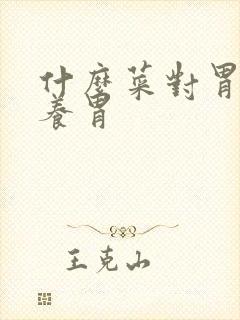 什麼菜對胃
養胃
王克山